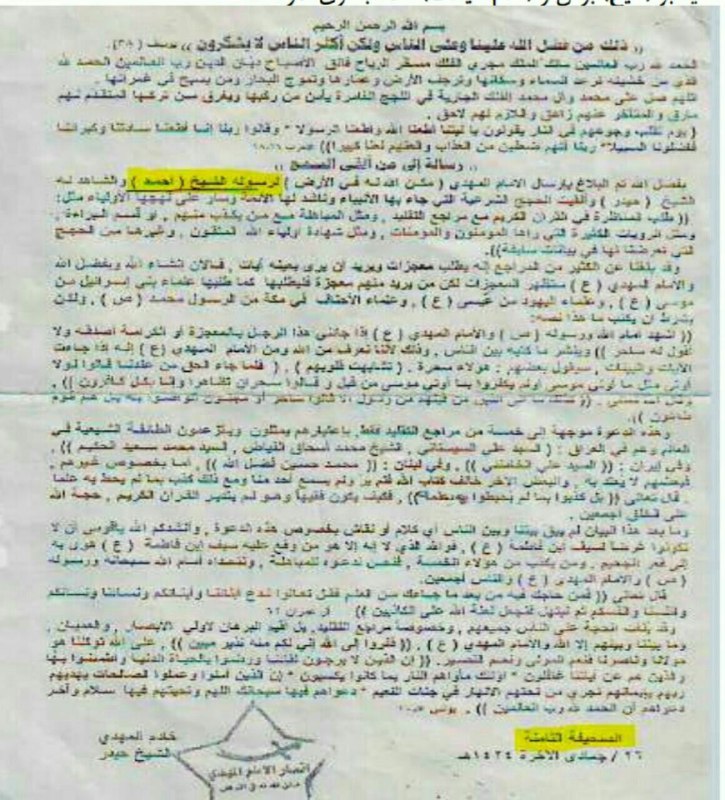 بسم الله الرحمن الرحيم
(( ذلك من فضل الله علينا وعلى الناس ولكن أكثر الناس لا يشكرون )) يوسف (٣٨)
الحمد لله رب العالمين مالك الملك مجري الفلك مسخر الرياح فالق الاصباح ديان الدين رب العالمين الحمد لله
الذي من خشيته ترعد السماء وسكانها وترجف الأرض وعمارها وتموج البحار ومن يسبح في غمراتها .
اللهم صل على محمد وآل محمد الفلك الجارية في اللجج الغامرة يأمن من ركبها ويغرق من تركها المتقدم لهم
مارق والمتأخر عنهم زاهق واللازم لهم لاحق .
( يوم تقلب وجوههم في النار يقولون يا ليتنا أطعنا الله وأطعنا الرسولا * وقالوا ربنا إنا أطعنا سادتنا وكبراءنا
فأضلونا السبيلا * ربنا آتهم ضعفين من العذاب والعنهم لعنا كبيرا )) الاحزاب
(( رسالة إلى من ألقى السمع ))
بفضل الله تم البلاغ بإرسال الامام المهدي ( مكن الله له في الأرض ) لرسوله الشيخ ( احمد ) والشاهد له
الشيخ ( حيدر ) وألقيت الحجج الشرعية التي جاء بها الأنبياء وناشد لها الأئمة وسار على نهجها الأولياء مثل:
(( طلب المناظرة في القرآن الكريم مع مراجع التقليد , ومثل المباهلة مع من يكذب منهم , أو قسم البراءة ,
ومثل الرويات الكثيرة التي رآها المؤمنون والمؤمنات , ومثل شهادة أولياء الله المتقون , وغيرها من الحجج
التي تعرضنا لها في بيانات سابقة )).
وقد بلغنا عن الكثير من المراجع إنه يطلب معجزات ويريد أن يرى بعينه آيات , فالآن انشاء الله وبفضل الله
والامام المهدي ( ع ) ستظهر المعجزات لكن من يريد منهم معجزة فليطلبها كما طلبها علماء بني إسرائيل من
موسى ( ع ) , وعلماء اليهود من عيسى ( ع ) , وعلماء الأحناف في مكة من الرسول محمد ( ص ) , ولكن
بشرط أن يكتب ما هذا نصه:
(( اشهد امام الله ورسوله ( ص ) والامام المهدي ( ع ) إذا جاءني هذا الرجل بالمعجزة أو الكرامة اصدقه ولا
أقول له ساحر )) وينشر ما كتبه بين الناس , وذلك لأننا نعرف من الله ومن الامام المهدي ( ع ) إنه إذا جاءت
الآيات والبينات , سيقول بعضهم : هؤلاء سحرة , ( تشابهت قلوبهم ) , ( فلما جاءهم الحق من عندنا قالوا لولا
أوتي مثل ما أوتي موسى أولم يكفروا بما أوتي موسى من قبل وقالوا سحران تظاهرا وإنا بكل كافرون )) ,
من رسول إلا قالوا ساحر أو مجنون أتواصوا به بل هم قوم
طاغون )).
وهذه الدعوة موجهة إلى خمسة من مراجع التقليد فقط, باعتبارهم يمثلون ويتزعمون الطائفة الشيعية في
العالم وهم في العراق : ( السيد علي السيستاني , الشيخ محمد أسحاق الفياض , السيد محمد سعيد الحكيم )) ,
وفي إيران : (( السيد علي الخامنئي )) , وفي لبنان : (( محمد حسين فضل الله )) , أما بخصوص غيرهم ,
فبعضهم لا يعتد به , والبعض الآخر خالف كتاب الله فلم ير ولم يسمع أحد منا ومع ذلك كذب بما لم يحط به علما
, قال تعالى (( بل كذبوا بما لم يحيطوا بعلمه )) , فكيف يكون فقيها وهو لم يتدبر القرآن الكريم , حجة الله
على الخلق أجمعين .
وما بعد هذا البيان لم يبق بيننا وبين الناس أي كلام أو نقاش بخصوص هذه الدعوة , وأنشدكم الله ياقومي أن لا
تكونوا غرضا لسيف ابن فاطمة ( ع ) , فوالله الذي لا إله إلا هو من وقع عليه سيف ابن فاطمة ( ع ) هوى به
إلى قعر الجحيم , ومن يكذب من هؤلاء الخمسة , فنحن ندعوه للمباهلة , ونتحداه أمام الله سبحانه ورسوله
( ص ) والامام المهدي ( ع ) والناس أجمعين.
قال تعالى (( فمن حاجك فيه من بعد ما جاءك من العلم فقل تعالوا ندع أبناءنا وأبناءكم ونساءنا ونساءكم
وأنفسنا وأنفسكم ثم نبتهل فنجعل لعنة الله على الكاذبين )) آل عمران ٦١
وقد بانت الحجة على الناس جميعهم , وخصوصا مراجع التقليد, بل اقيم البرهان لاولي الابصار , والعميان ,
وما بيننا وبينهم إلا الله والامام المهدي ( ع ) . (( ففروا إلى الله إني لكم منه نذير مبين )) , على الله توكلنا هو
مولانا وناصرنا فنعم المولى ونعم النصير. (( إن الذين لا يرجون لقاءنا ورضوا بالحياة الدنيا واطمئنوا بها
والذين هم عن آياتنا غافلون * أولئك مأواهم النار بما كانوا يكسبون * إن الذين آمنوا وعملوا الصالحات يهديهم
ربهم بإيمانهم تجري من تحتهم الانهار في جنات النعيم * دعواهم فيها سبحانك اللهم وتحيتهم فيها سلام وآخر
دعواهم أن الحمد لله رب العالمين )) . يونس
الصحيفة الثامنة
٢٦ / جمادى الآخرة / ١٤٢٤هـ
خادم المهدي
الشيخ حيدر
أنصار الامام المهدي